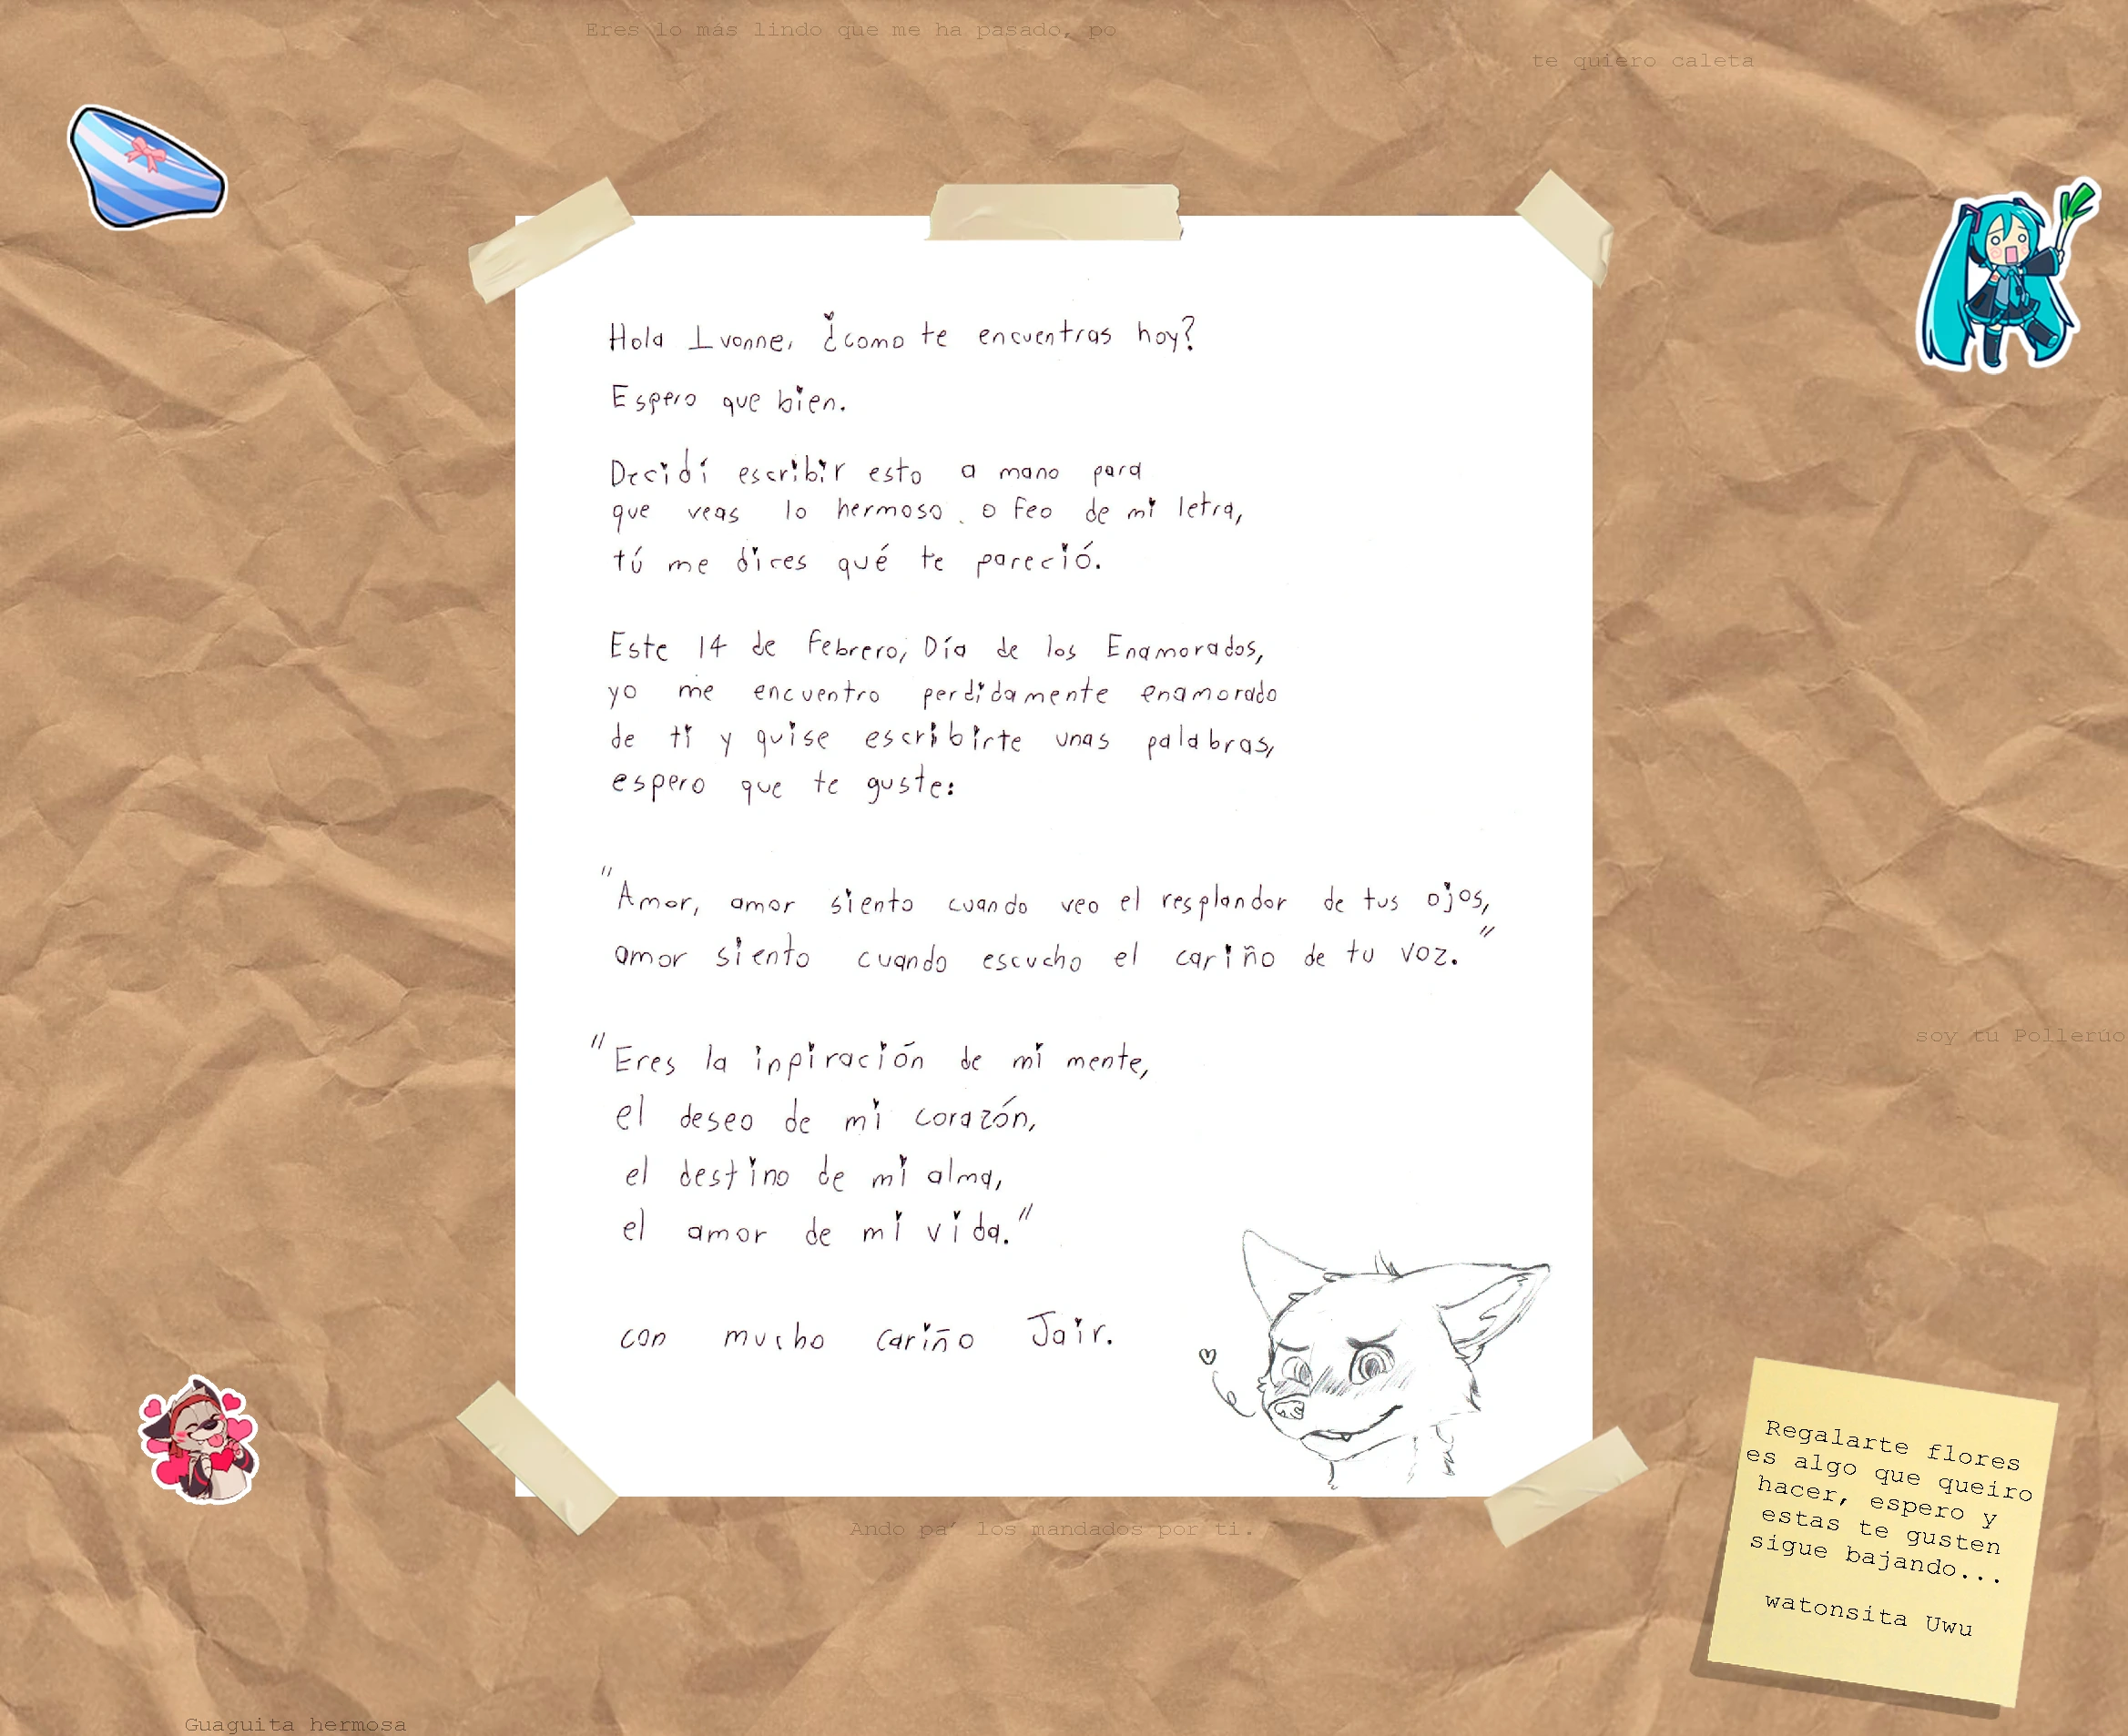 Eres lo más lindo que me ha pasado, po
te quiero caleta
Hola Ivonne, ¿como te encuentras hoy?
Espero que bien.
Decidí escribir esto a mano para
que veas lo hermoso o feo de mi letra,
tú me dices qué te pareció.
Este 14 de Febrero, Día de los Enamorados,
yo me encuentro perdidamente enamorado
de ti y quise escribirte unas palabras,
espero que te guste:
"Amor, amor siento cuando veo el resplandor de tus ojos,
amor siento cuando escucho el cariño de tu voz."
soy tu Polleruo
"Eres la inpiración de mi mente,
el deseo de mi corazón,
el destino de mi alma,
el amor de mi vida."
con mucho cariño Jair.
Regalarte flores
es algo que queiro
hacer, espero y
estas te gusten
sigue bajando...
watonsita Uwu
Ando pa' los mandados por ti.
Guaguita hermosa